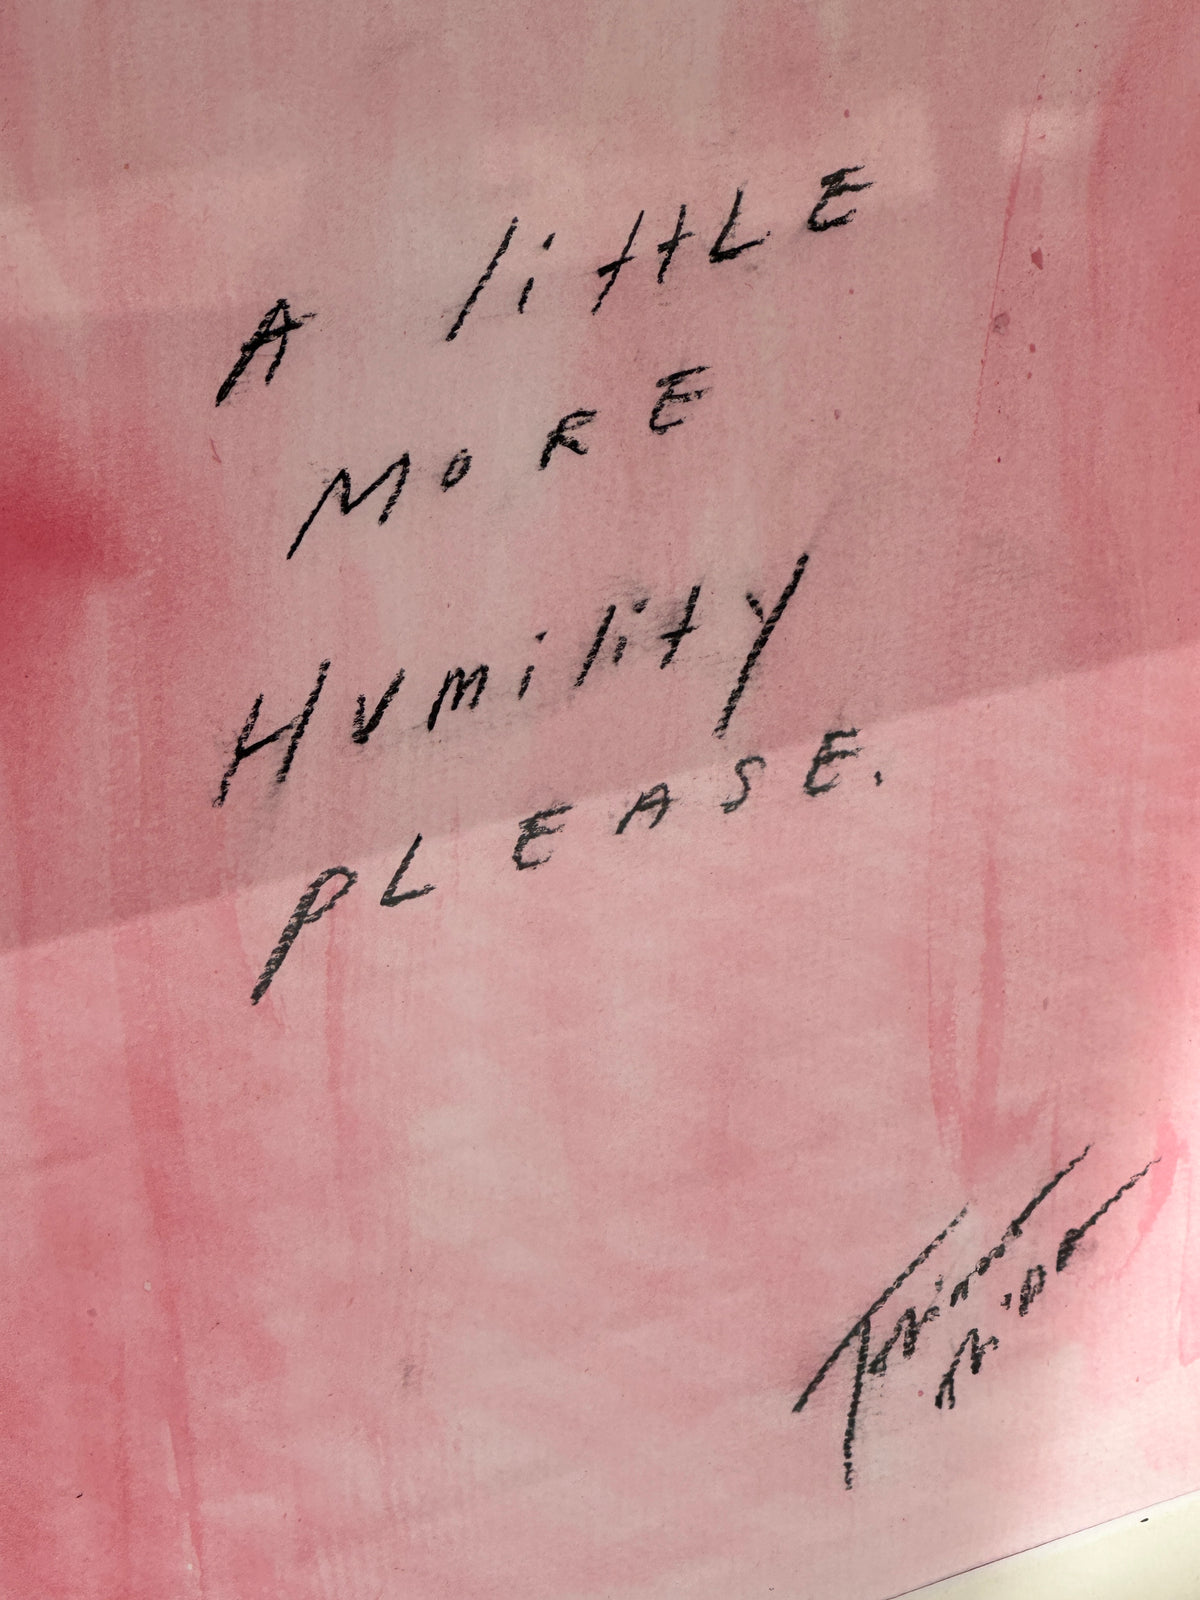 A littLE
MORE
HUmility
PLEASE.